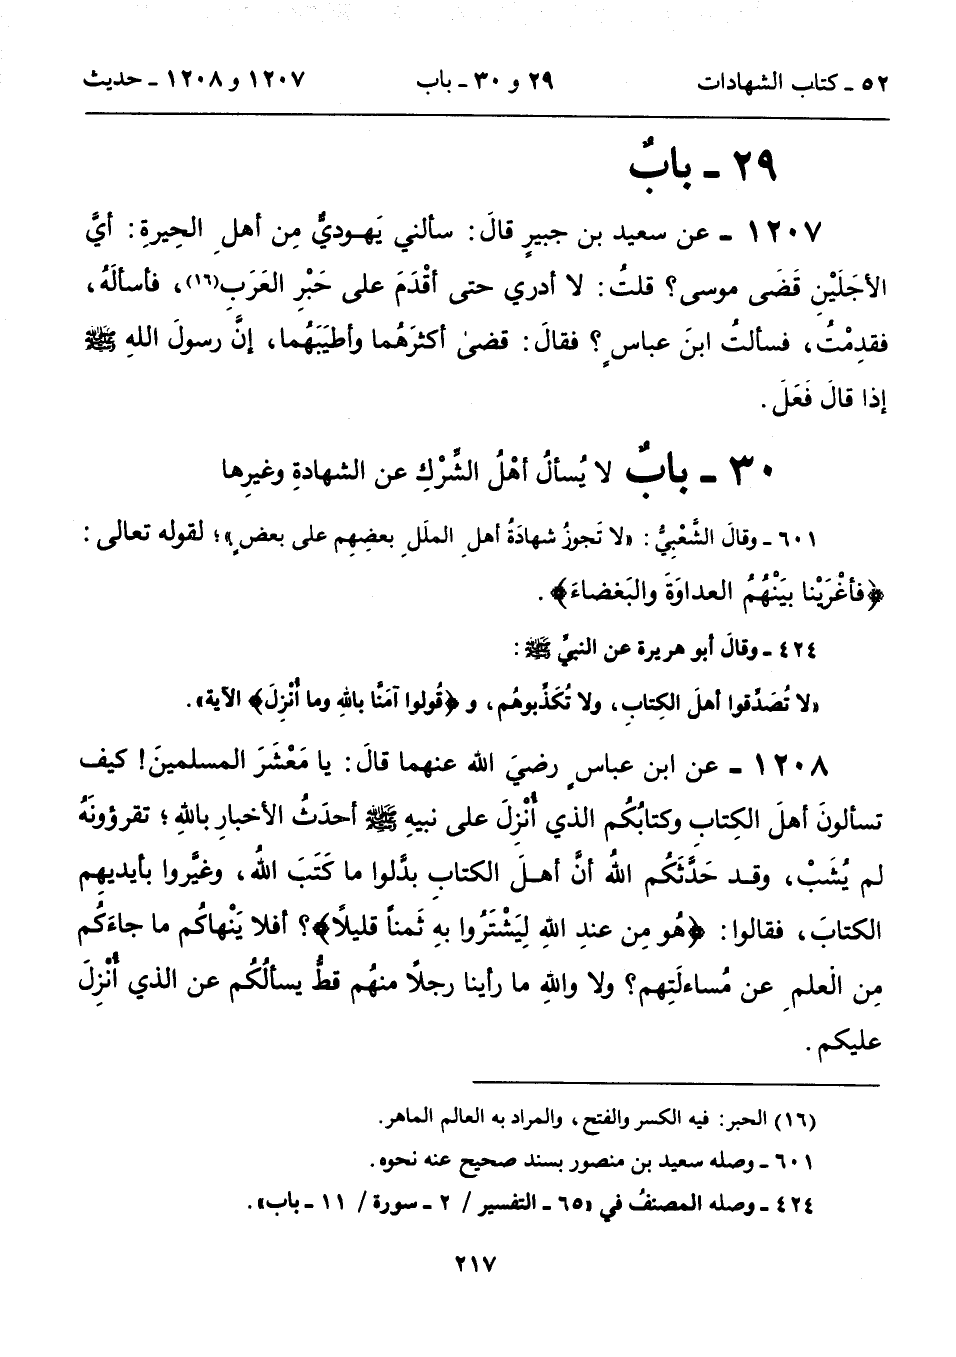 ٥٢ ـ كتاب الشهادات ٢٩ و ٣٠ ـ باب ١٢٠٧ و ١٢٠٨ ـ حديث
٢٩ ـ بابٌ
١٢٠٧ ـ عن سعيد بن جبيرٍ قالَ: سألني يَهوديٌّ مِن أهلِ الحِيرةِ: أيَّ
الأجَلَيْنِ قَضَى موسى؟ قلتُ: لا أدري حتى أقْدَمَ على حَبْرِ العَرَبِ(١٦)، فأسألَهُ،
فقدِمْتُ، فسألتُ ابنَ عباسٍ؟ فقالَ: قضىٰ أكثرَهُما وأطيَبَهُما، إنَّ رسولَ اللهِ ﷺ
إذا قالَ فَعَلَ.
٣٠ ـ بابٌ لا يُسألُ أهْلُ الشِّرْكِ عن الشهادةِ وغيرِها
٦٠١ ـ وقالَ الشَّعْبِيُّ: «لا تَجوزُ شهادَةُ أهلِ الملَلِ بعضِهِم على بعضٍ»؛ لقوله تعالى:
﴿فأغْرَيْنا بيَنْهُمُ العداوَةَ والبَغضاءَ﴾.
٤٢٤ ـ وقالَ أبو هريرة عن النبيِّ ﷺ:
«لا تُصَدِّقوا أهلَ الكِتابِ، ولا تُكَذِّبوهُم، و ﴿قُولوا آمَنَّا باللهِ وما أُنْزِلَ﴾ الآية».
١٢٠٨ ـ عن ابن عباسٍ رضيَ الله عنهما قالَ: يا مَعْشَرَ المسلمينَ! كيف
تسألونَ أهلَ الكِتابِ وكتابُكُم الذي أُنْزِلَ على نبيهِ ﷺ أحدَثُ الأخبارِ باللهِ؛ تقرؤونَهُ
لم يُشَبْ، وقد حَدَّثَكُم اللهُ أنَّ أهلَ الكتابِ بدَّلوا ما كَتَبَ اللهُ، وغيَّروا بأيديهِم
الكتابَ، فقالوا: ﴿هُو مِن عندِ اللهِ لِيَشْتَرُوا بهِ ثَمناً قليلاً﴾؟ أفلا يَنْهاكُم ما جاءَكُم
مِن الْعلمِ عن مُساءلَتِهم؟ ولا واللهِ ما رأينا رجلاً منهُم قطُّ يسألُكُم عن الذي أُنْزِلَ
عليكم.
(١٦) الحبر: فيه الكسر والفتح، والمراد به العالم الماهر.
٦٠١ ـ وصله سعيد بن منصور بسند صحيح عنه نحوه.
٤٢٤ ـ وصله المصنفُ في «٦٥ ـ التفسير / ٢ ـ سورة / ١١ ـ باب».
٢١٧